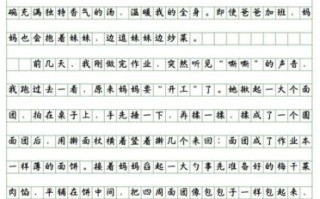 碗充满独特香气的汤，温暖我的全身。即使爸爸加班，妈
妈也会抱着妹妹，边追妹妹边炒菜。
前几天，我刚做完作业，突然听见“嘶嘶”的声音，
我跑过去一看，原来妈妈要“开工”了。她揪起一大个面
团，拍在桌子上，手先捶一下，再揉一揉，揉成了一个圆
面团后，用擀面杖横着竖着擀几个来回：面团成了作业本
一样薄的面饼。接着妈妈舀起一大勺事先准备好的梅干菜
肉馅，平铺在饼中间，把四周面团像包包子一样包起来，